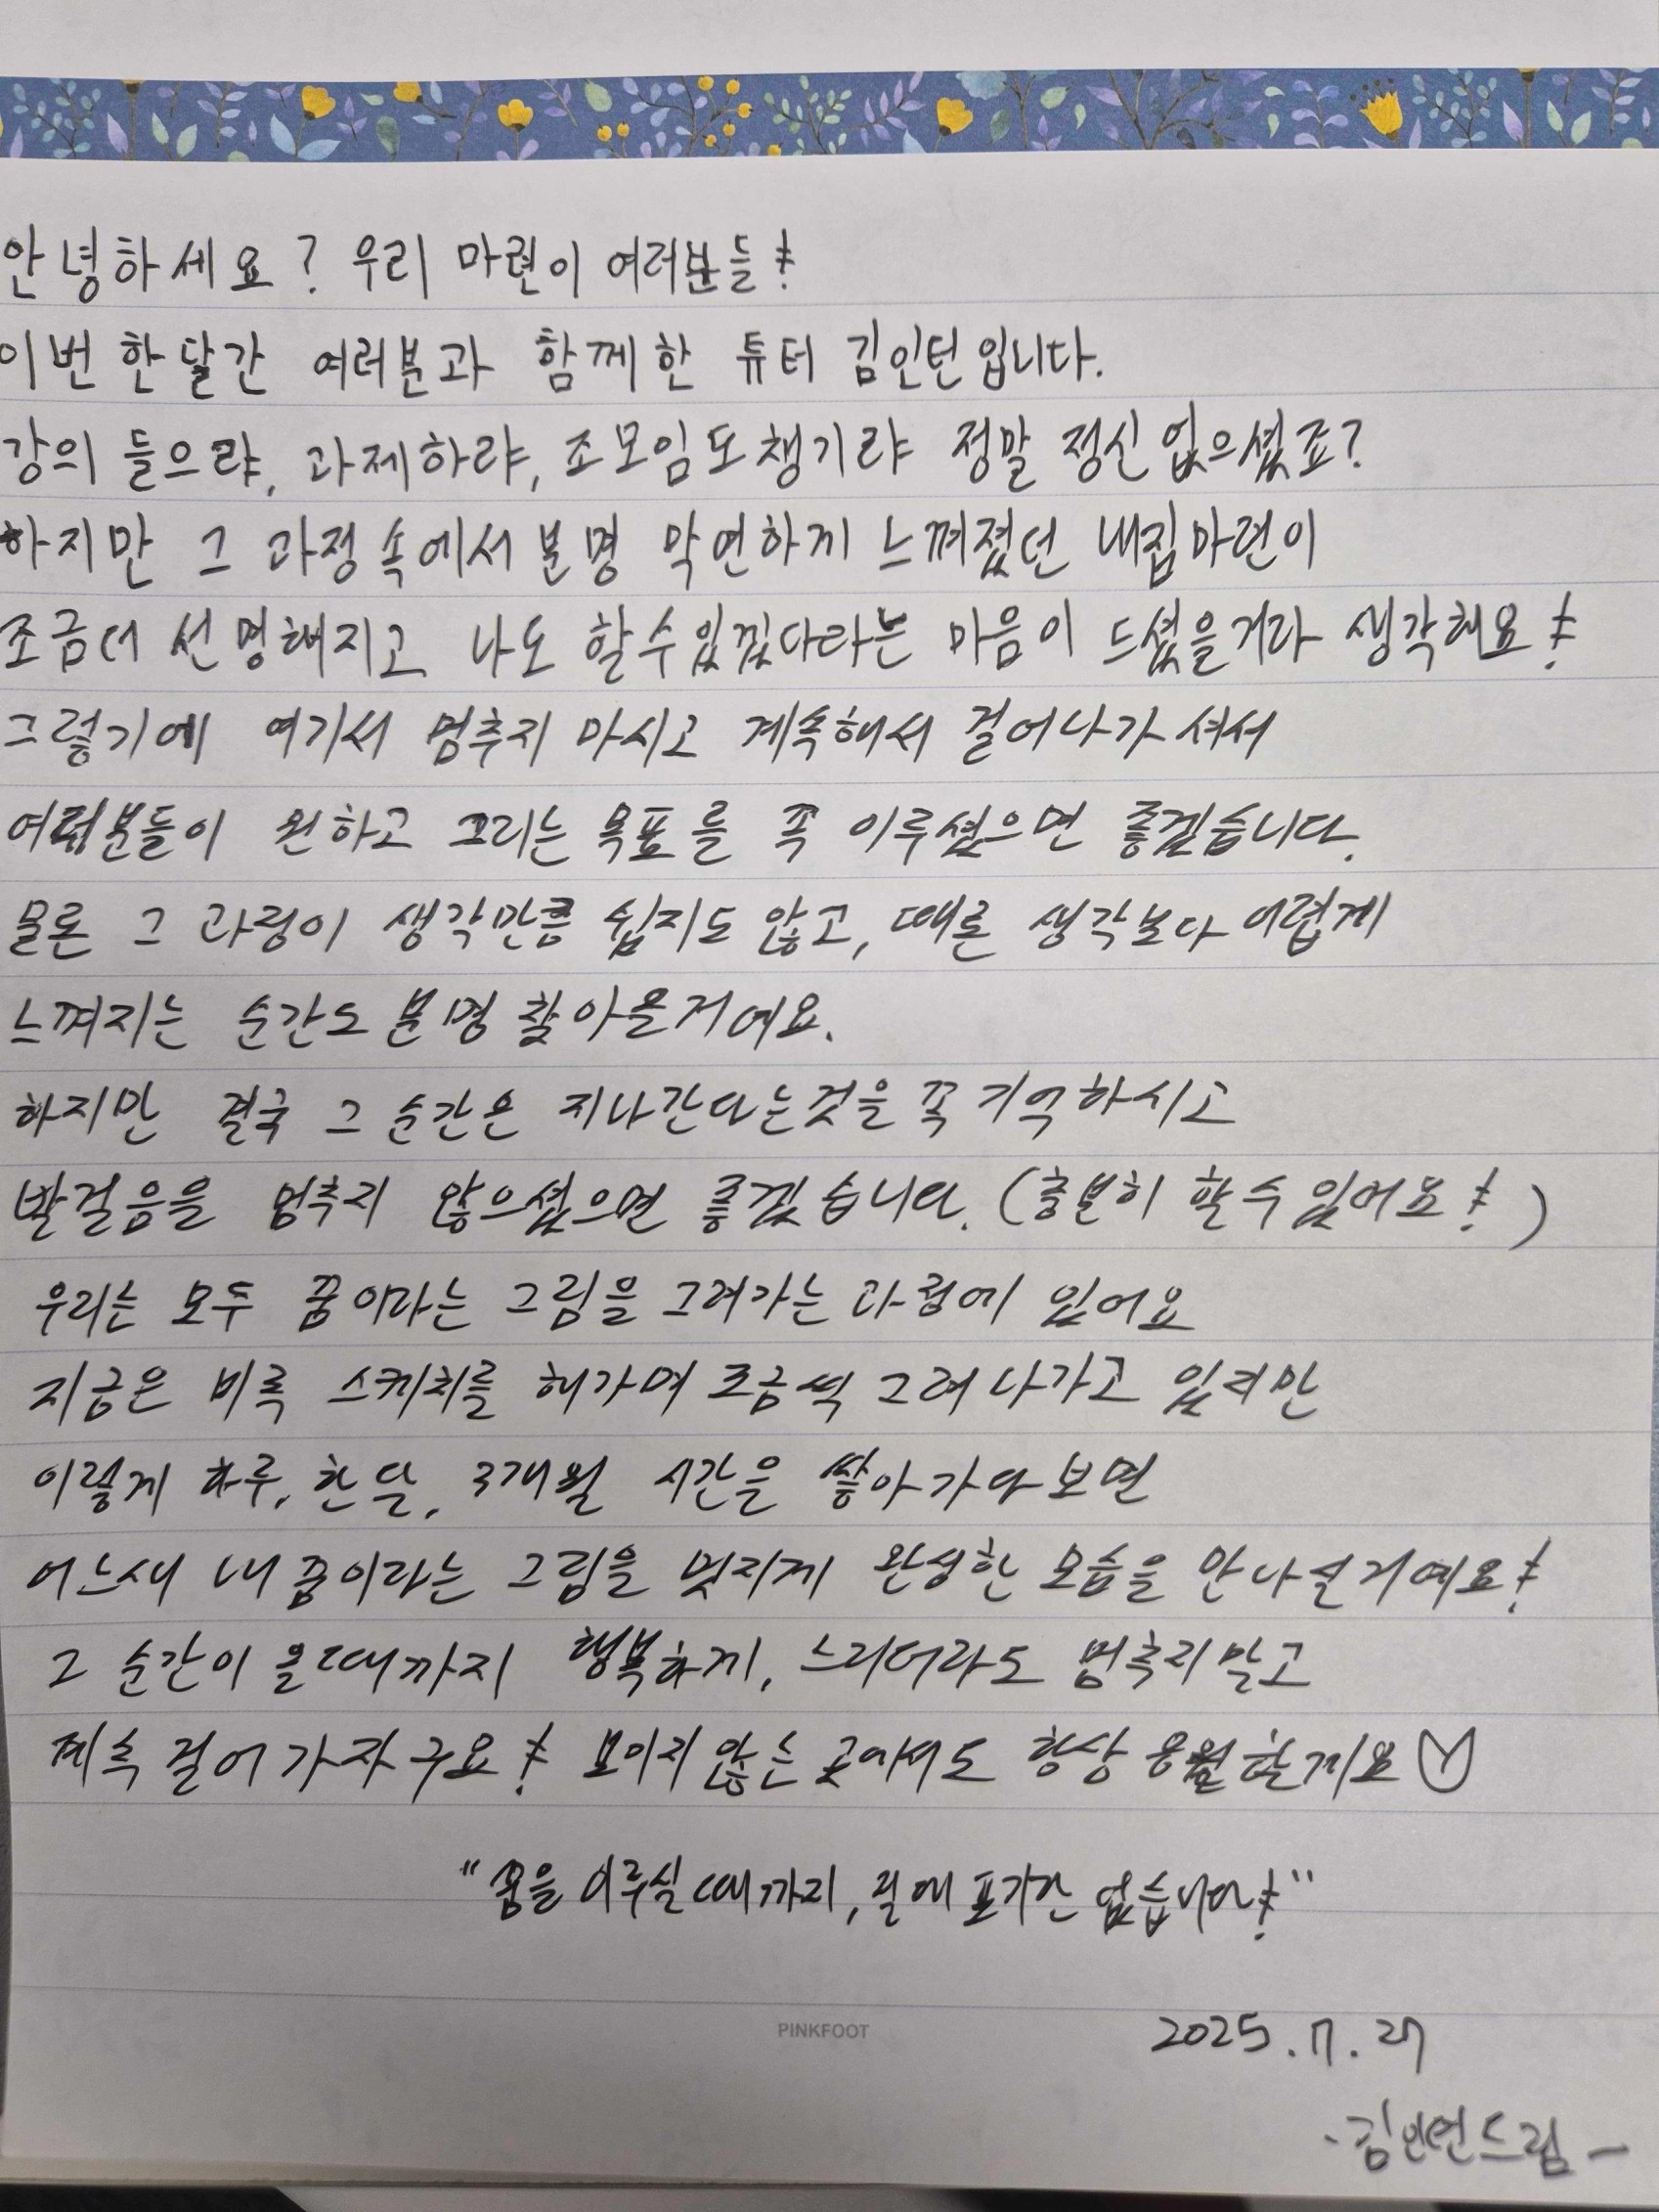 안녕하세요? 우리 마련이 여러분들!
이번 한달간 여러분과 함께한 튜터 김인턴입니다.
강의 들으랴, 과제하랴, 조모임도챙기랴 정말 정신없으셨죠?
하지만 그 과정속에서 분명 막연하게 느껴졌던 내집마련이
조금더 선명해지고 나도 할수있겠다라는 마음이 드셨을거라 생각해요!
그렇기에 여기서 멈추지 마시고 계속해서 걸어나가셔서
여러분들이 원하고 그리는 목표를 꼭 이루셨으면 좋겠습니다.
물론 그 과정이 생각만큼 쉽지도 않고, 때론 생각보다 어렵게
느껴지는 순간도 분명 찾아올거에요.
하지만 결국 그 순간은 지나간다는것을 꼭 기억하시고
발걸음을 멈추지 않으셨으면 좋겠습니다. (충분히 할수있어요!)
우리는 모두 꿈이라는 그림을 그려가는 과정에 있어요
지금은 비록 스케치를 해가며 조금씩 그려나가고 있지만
이렇게 하루, 한달, 3개월 시간을 쌓아가다보면
어느새 내 꿈이라는 그림을 멋지게 완성한 모습을 만나실거예요!
그 순간이 올때까지 행복하게, 느리더라도 멈추지말고
계속 걸어가자구요! 보이지않는 곳에서도 항상 응원할게요♡
"꿈을 이루실때까지, 절대 포기란 없습니다!"
PINKFOOT
2025.7.27
-김인턴드림-